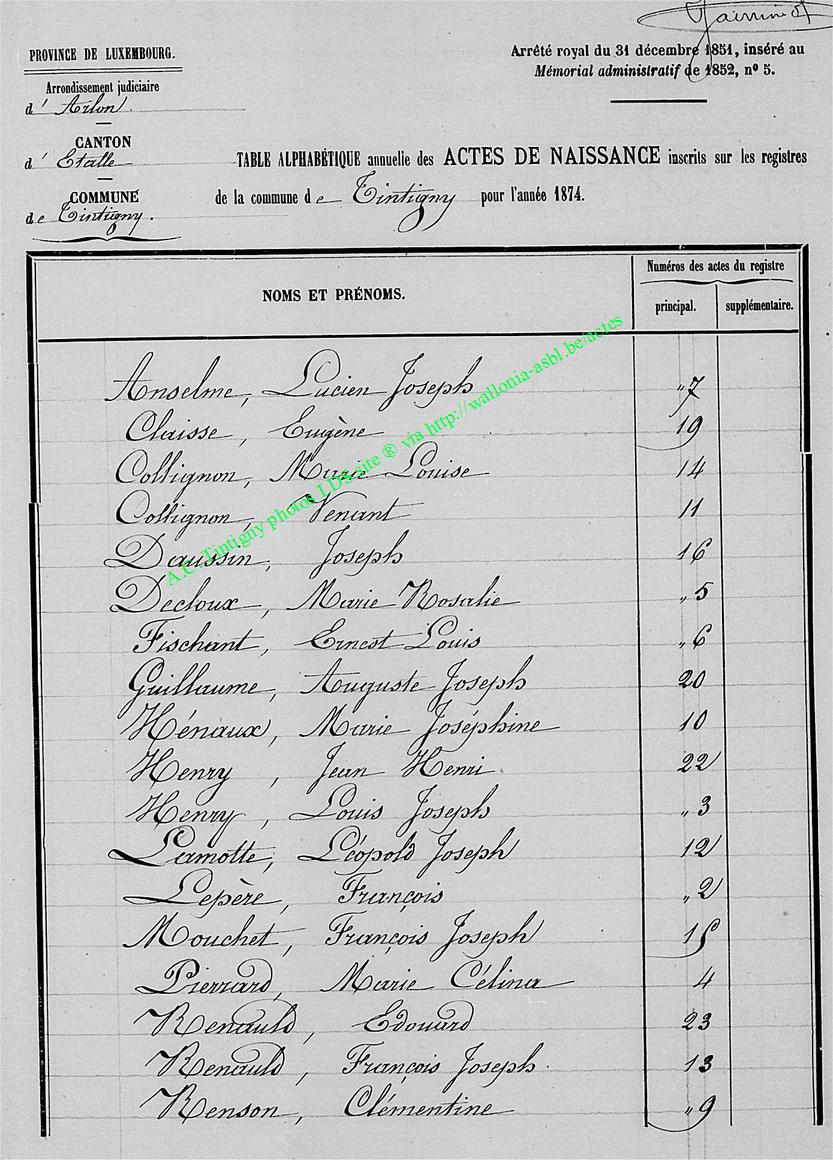 PROVINCE DE LUXEMBOURG.
Arrondissement judiciaire
d' Arlon.
CANTON
d' Etalle
COMMUNE
de Tintigny.
Arrêté royal du 31 décembre 1851, inséré au
Mémorial administratif de 1852, nº 5.
TABLE ALPHABÉTIQUE annuelle des ACTES DE NAISSANCE inscrits sur les registres
de la commune de Tintigny pour l'année 1874.
NOMS ET PRÉNOMS.
Numéros des actes du registre
principal. supplémentaire.
Anselme, Lucien Joseph „7
Claisse, Eugène 19
Collignon, Marie Louise 14
Collignon, Venant 11
Daussin, Joseph 16
Decloux, Marie Rosalie „5
Fischant, Ernest Louis „6
Guillaume, Auguste Joseph 20
Hénaux, Marie Joséphine 10
Henry, Jean Henri 22
Henry, Louis Joseph „3
Lamotte, Léopold Joseph 12
Lepère, François „2
Mouchet, François Joseph 15
Pierrard, Marie Célina 4
Renauld, Edouard 23
Renauld, François Joseph. 13
Renson, Clémentine „9
A.C. Tintigny photos LDS site ® via http://wallonia-asbl.be/actes